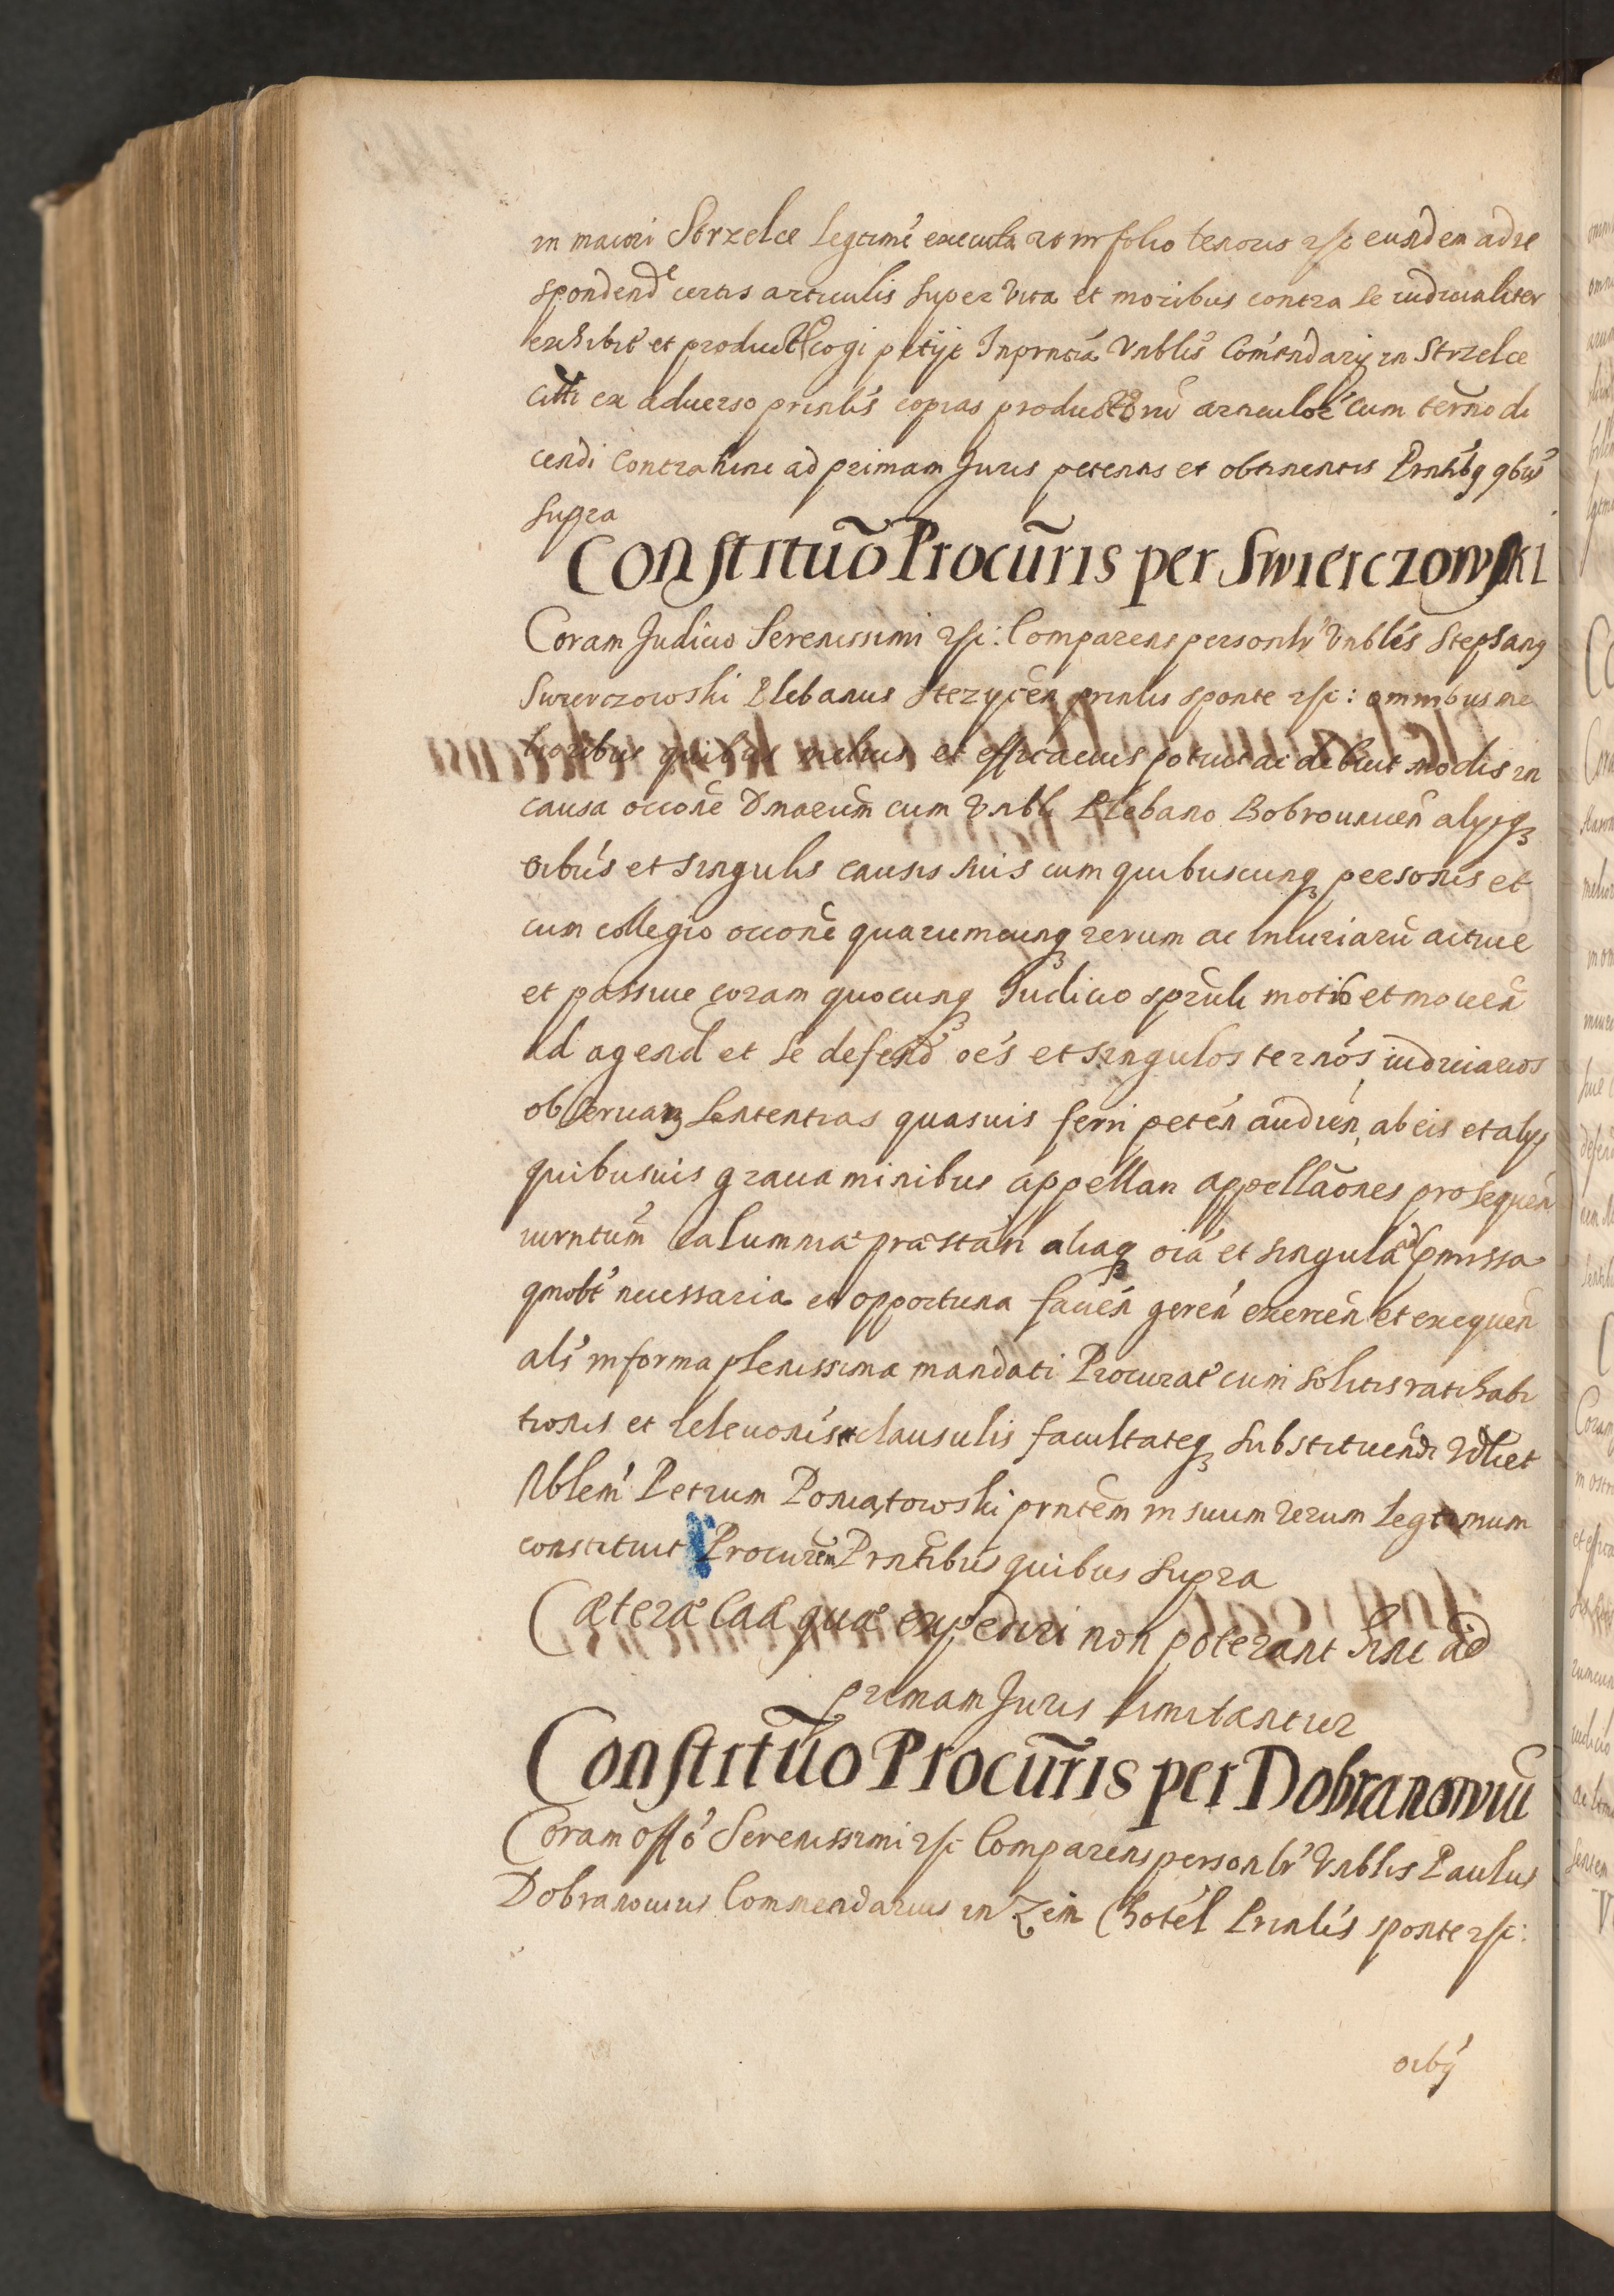 in maiori Strzelce legtimé executa et in folio tenoris etc eundem ad re
spondende certis articulis super vita et moribus contra se iudicialiter
exhibit et product cogi petijt In prntia Vnblis Comendarij in Strzelce
citti ex aduerso prinlis copias productorũ articulor cum termo di
cendi contra hinc ad primam Juris petentis et obtinentis Prntibq qbus
supra
Constituõ Procũris per Swierczowski
Coram Judicio Serenissimi etc: Comparens personlr Vnblis Stephanq
Swierczowski Plebanus Stezyceñ prinlis sponte etc: omnibus me
lioribus quibus melius et efficacius potuit ac debuit modis in
causa occõne Dmarum cum Vnbli Plebano Bobrouniceñ alysq
oibús et singulis causis suis cum quibuscunq personis et
cum collegio occoné quarumcunq rerum ac iniuriarũ actiue
et passiue coram quocunq Judicio sprũli motis et moueñ
ad agend et se defend oés et singulos ternós iudiciarios
obseruan sententias quasuis ferri petén audien ab eis et alys
quibusuis grauaminibus appellan appellaões prosequeñ
iurntum calumniæ præstan aliaq oia et singula ad pmissa
qmobt necessaria et opportuna facién gerén exercén et exequeñ
als in forma plenissima mandati Procurat cum solitis ratihabi
tionis et releuonis clausulis facultateq substituendi Vdlict
Nblem Petrum Poniatowski prntem in suum verum legtimum
constituit Procurẽm Prntibus quibus supra
Cæteræ Caæ quæ expediri non poterant hinc ad
primam Juris limitantur
Constituõ Procũris per Dobranowiũ
Coram offõ Serenissimi etc Comparens personlr Vnblis Paulus
Dobranouius Commendarius in Zim Chotél Prinlis sponte etc:
oibq